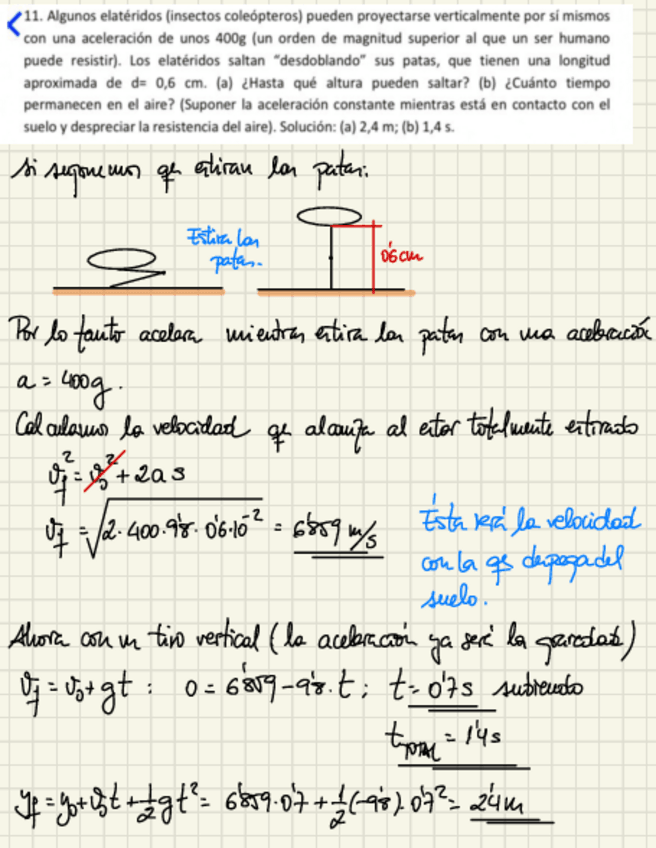 11. Algunos elatéridos (insectos coleópteros) pueden proyectarse verticalmente por sí mismos
con una aceleración de unos 400g (un orden de magnitud superior al que un ser humano
puede resistir). Los elatéridos saltan "desdoblando" sus patas, que tienen una longitud
aproximada de d= 0,6 cm. (a) ¿Hasta qué altura pueden saltar? (b) ¿Cuánto tiempo
permanecen en el aire? (Suponer la aceleración constante mientras está en contacto con el
suelo y despreciar la resistencia del aire). Solución: (a) 2,4 m; (b) 1,4 s.
Si suponemos qe estiran las patas:
Estira las
patas.
0'6 cm
Por lo tanto acelera mientras estira las patas con una aceleración
a = 400g.
Calculamos la velocidad qe alcanza al estar totalmente estirado
v_f² = v_0² + 2 a s
v_f = √(2 · 400 · 9'8 · 0'6 · 10⁻²) = 6'859 m/s
Ésta será la velocidad
con la qe despega del
suelo.
Ahora con un tiro vertical (la aceleración ya será la gravedad)
v_f = v_0 + gt : 0 = 6'859 - 9'8 · t ; t = 0'7 s subiendo
t_TOTAL = 1'4 s
y_f = y_0 + v_0 t + 1/2 g t² = 6'859 · 0'7 + 1/2 (-9'8) · 0'7² = 2'4 m